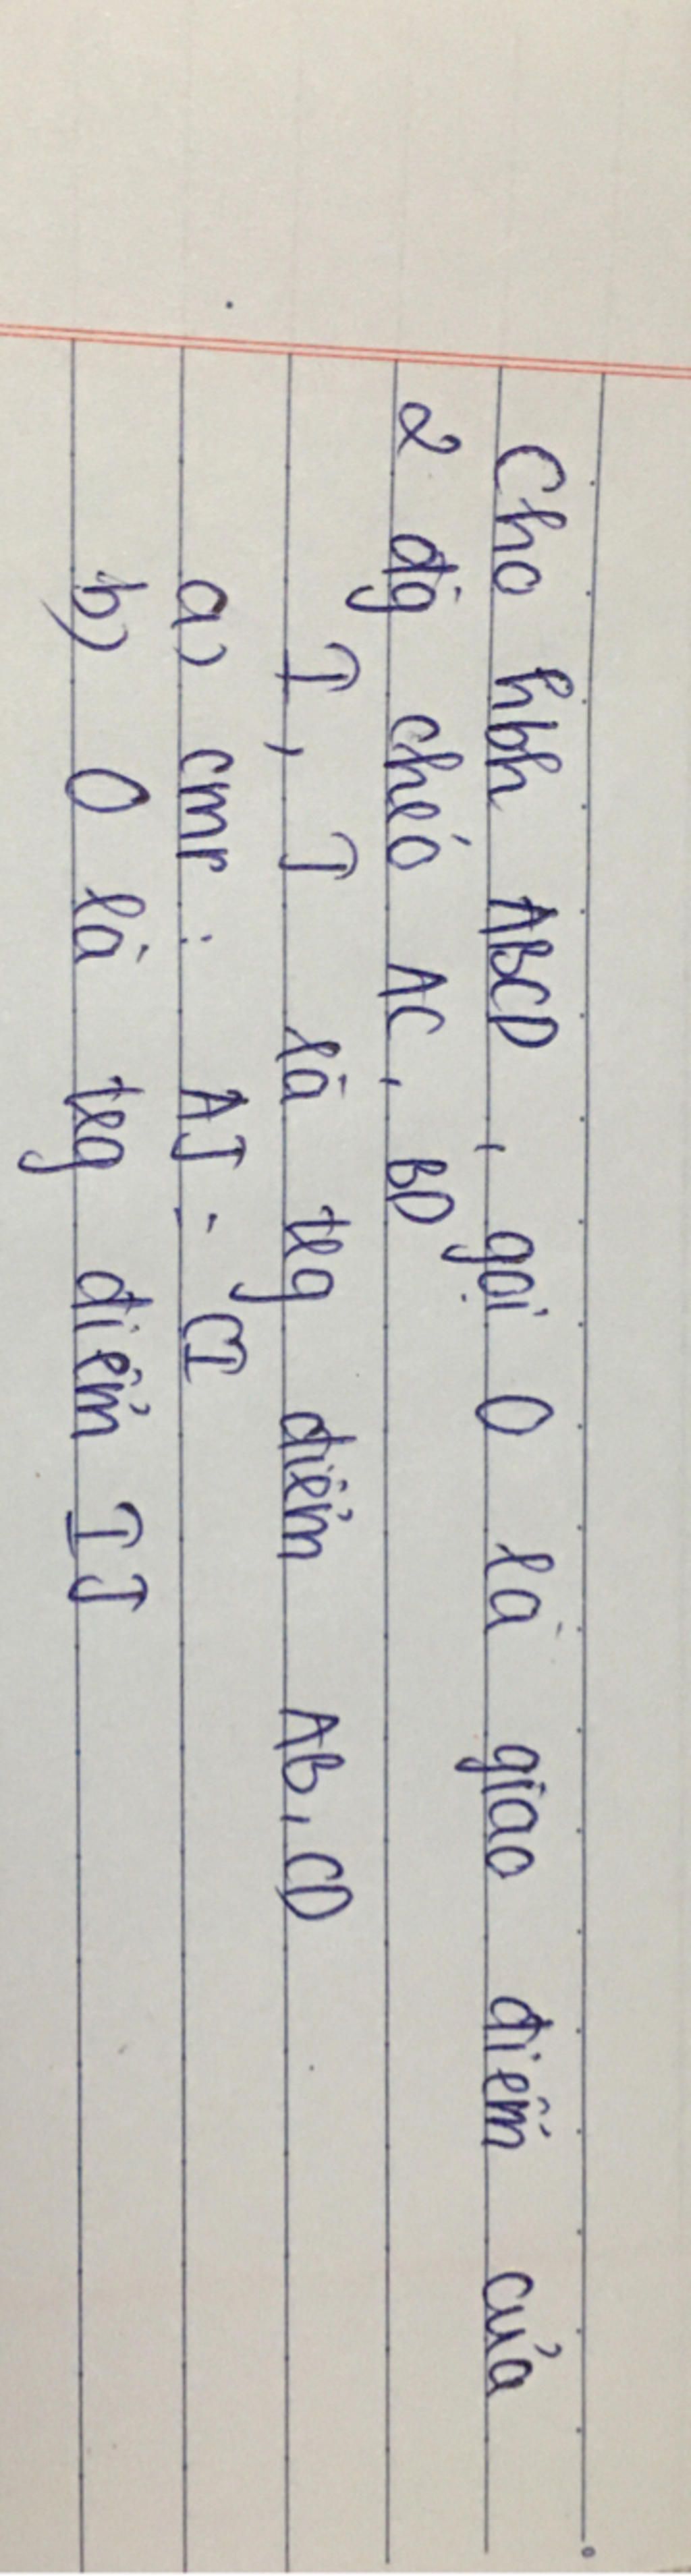 Cho hbh ABCD, gọi O là giao điểm của
2 đg chéo AC, BD
I, J là trg điểm AB, CD
a) cmr: AJ = CI
b) O là trg điểm IJ